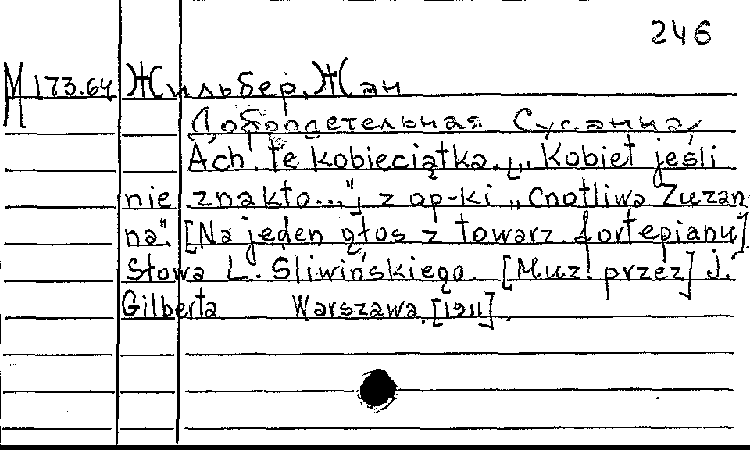 246
М 173.64 Жильбер, Жан
Добродетельная Сусанна,
Ach te kobieciątka. „Kobiet jeśli
nie zna kto..."; z op-ki „Cnotliwa Zuzan
na". [Na jeden głos z towarz fortepianu]
Słowa L. Śliwińskiego. [Muz. przez] J.
Gilberta Warszawa, [1911].